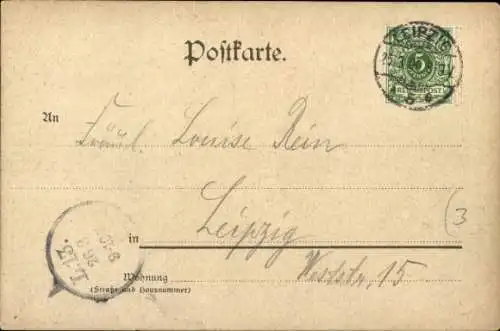 LEIPZIG
Postkarte.
5
REICHSPOST
An
Fräul. Louise Rein
in Leipzig
(3
Wohnung Weststr. 15
(Straße und Hausnummer)